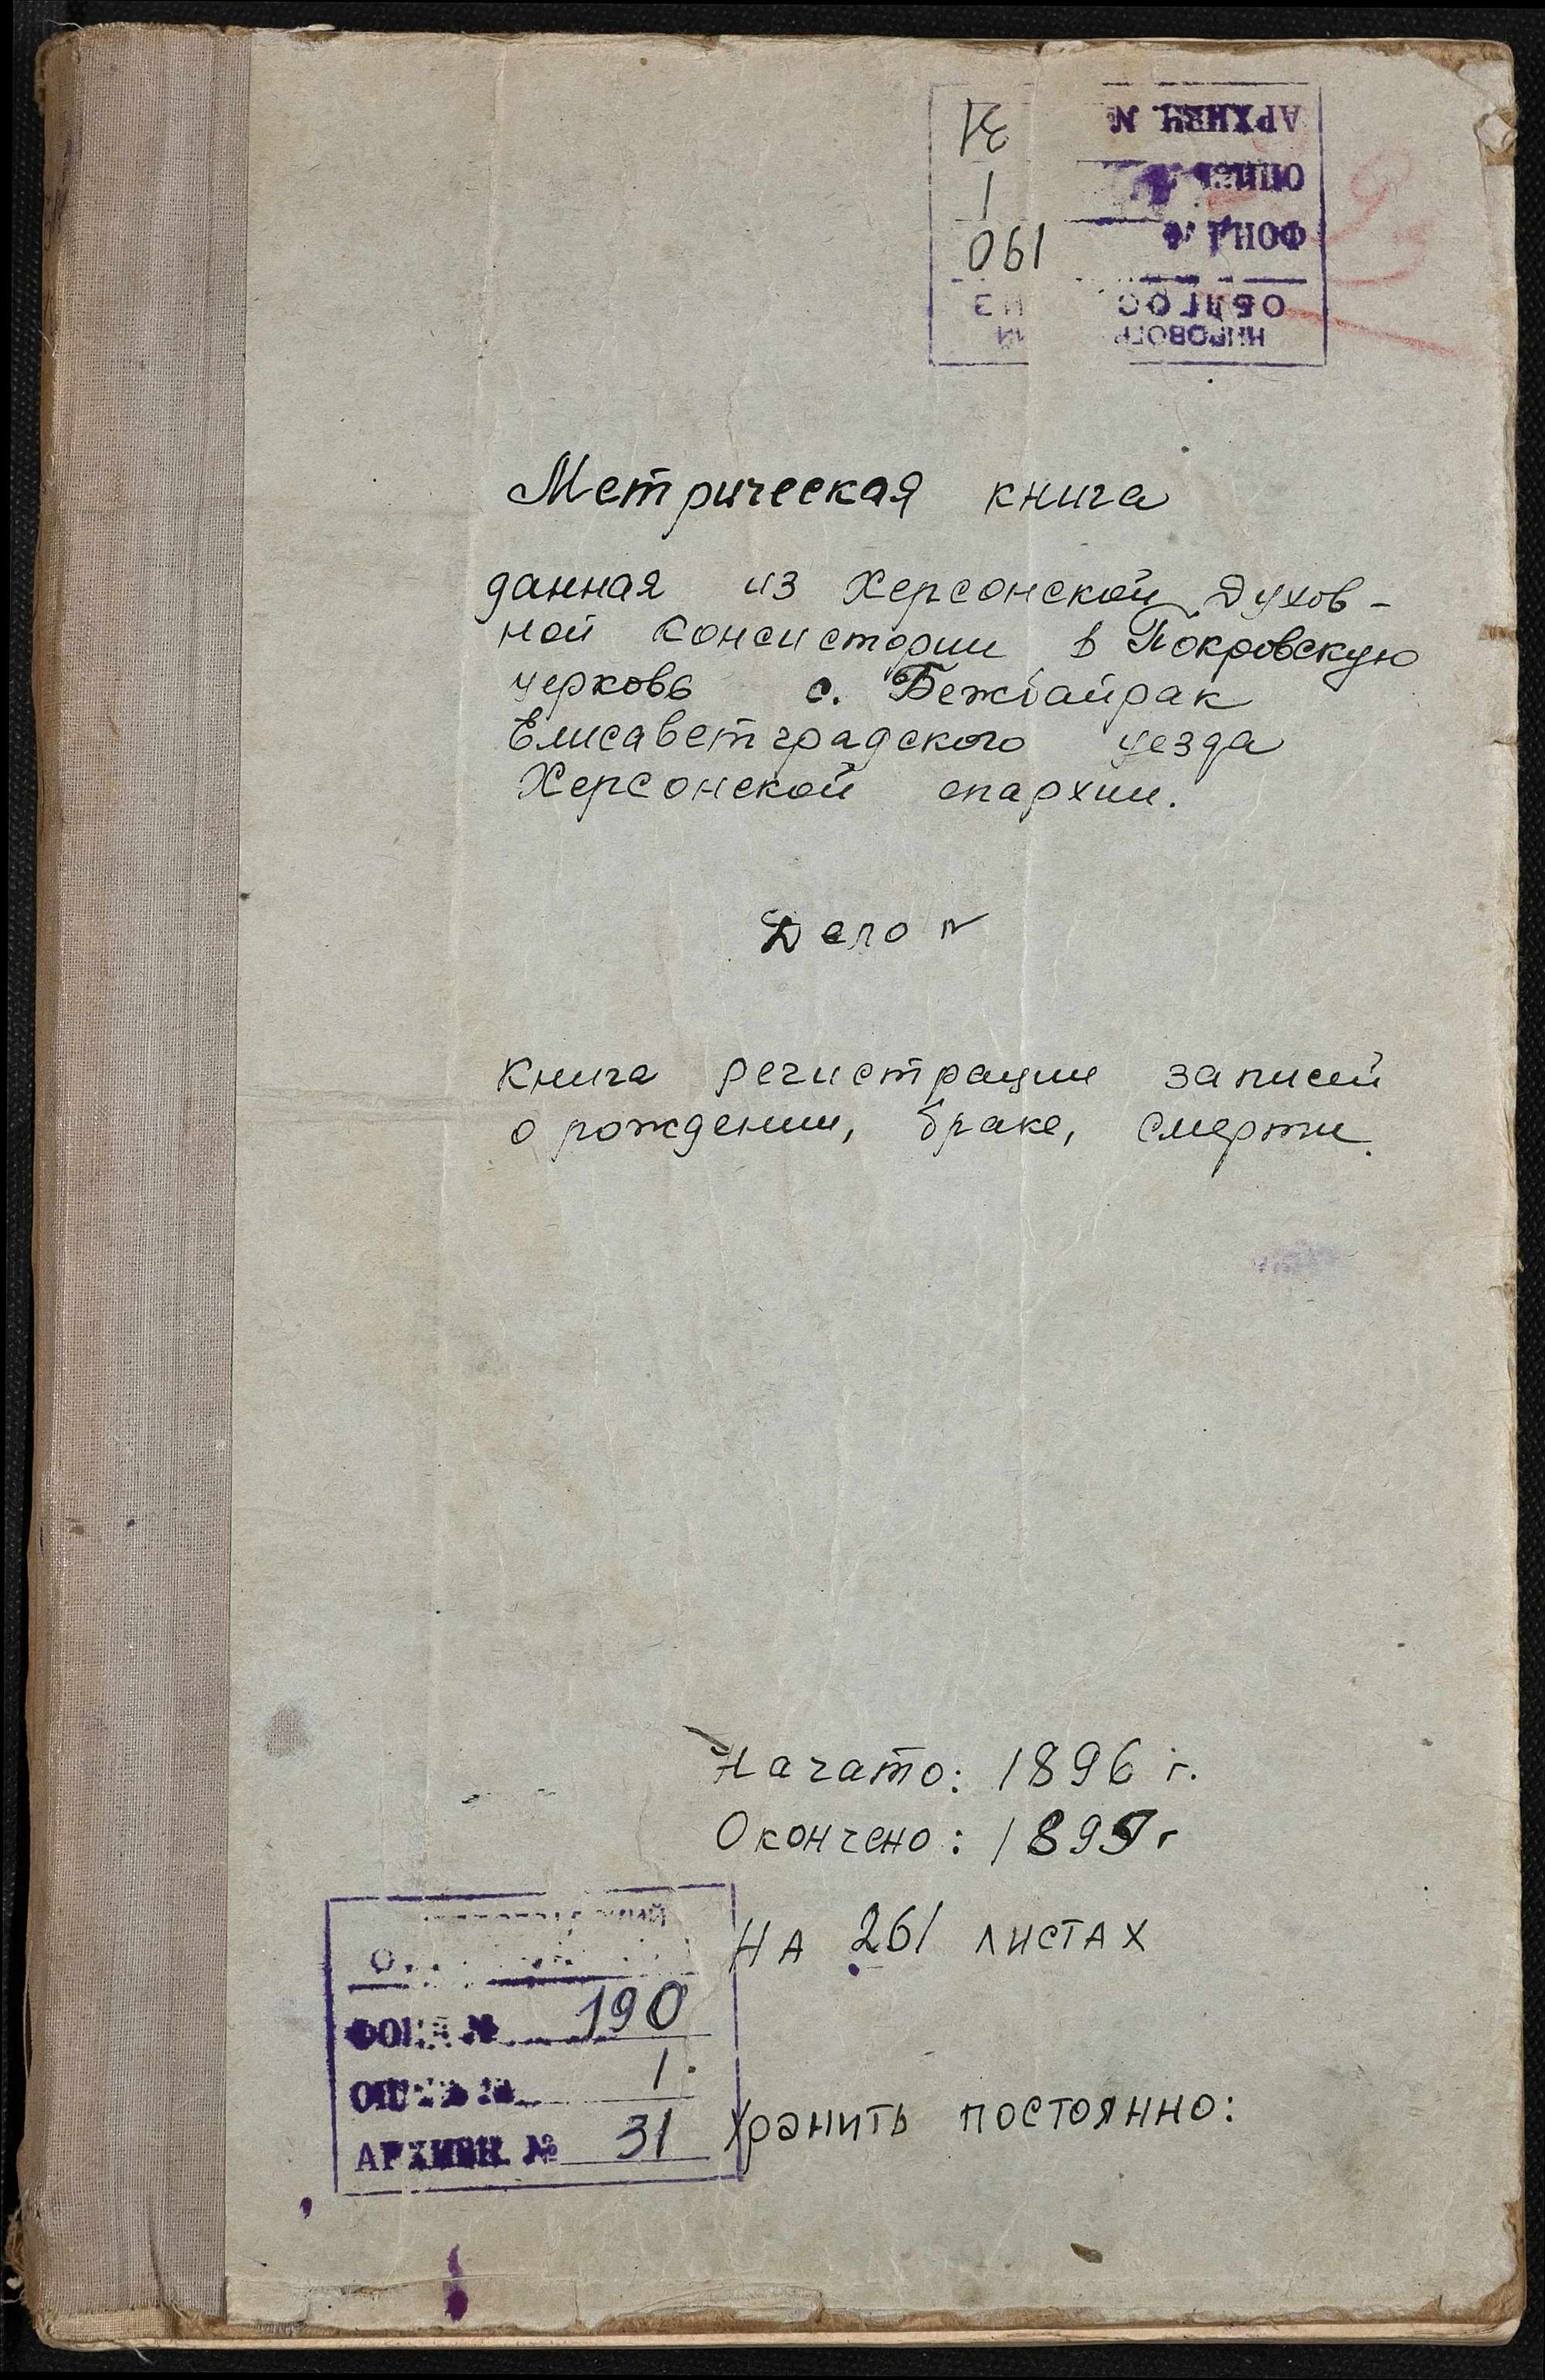 АРХИВН. № 31
ОПИСЬ 1
ФОНД № 190
ОБЛГОС
Метрическая книга
данная из Херсонской Духов-
ной Консистории в Покровскую
церковь с. Бежбайрак
Елисаветградского уезда
Херсонской епархии.
Дело №
Книга регистрации записей
о рождении, браке, смерти.
Начато: 1896 г.
Окончено: 1899 г
На 261 листах
ФОНД № 190
ОПИСЬ № 1
АРХИВН. № 31
Хранить постоянно: